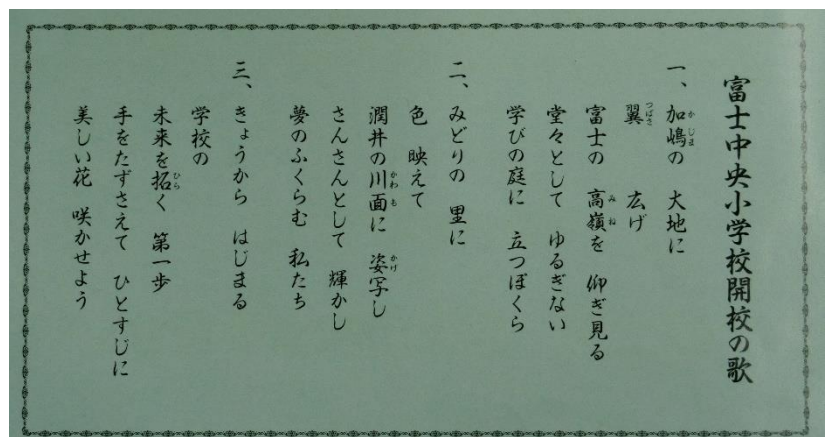 富士中央小学校開校の歌
一、加嶋の 大地に
翼 広げ
富士の 高嶺を 仰ぎ見る
堂々として ゆるぎない
学びの庭に 立つぼくら
二、みどりの 里に
色 映えて
潤井の川面に 姿写し
さんさんとして 輝かし
夢のふくらむ 私たち
三、きょうから はじまる
学校の
未来を拓く 第一歩
手をたずさえて ひとすじに
美しい花 咲かせよう